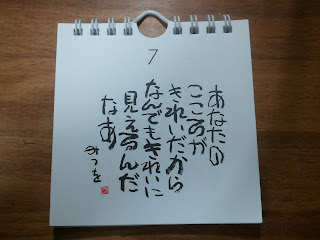 7
あなたの
こころが
きれいだから
なんでもきれいに
見えるんだ
なあ
みつを